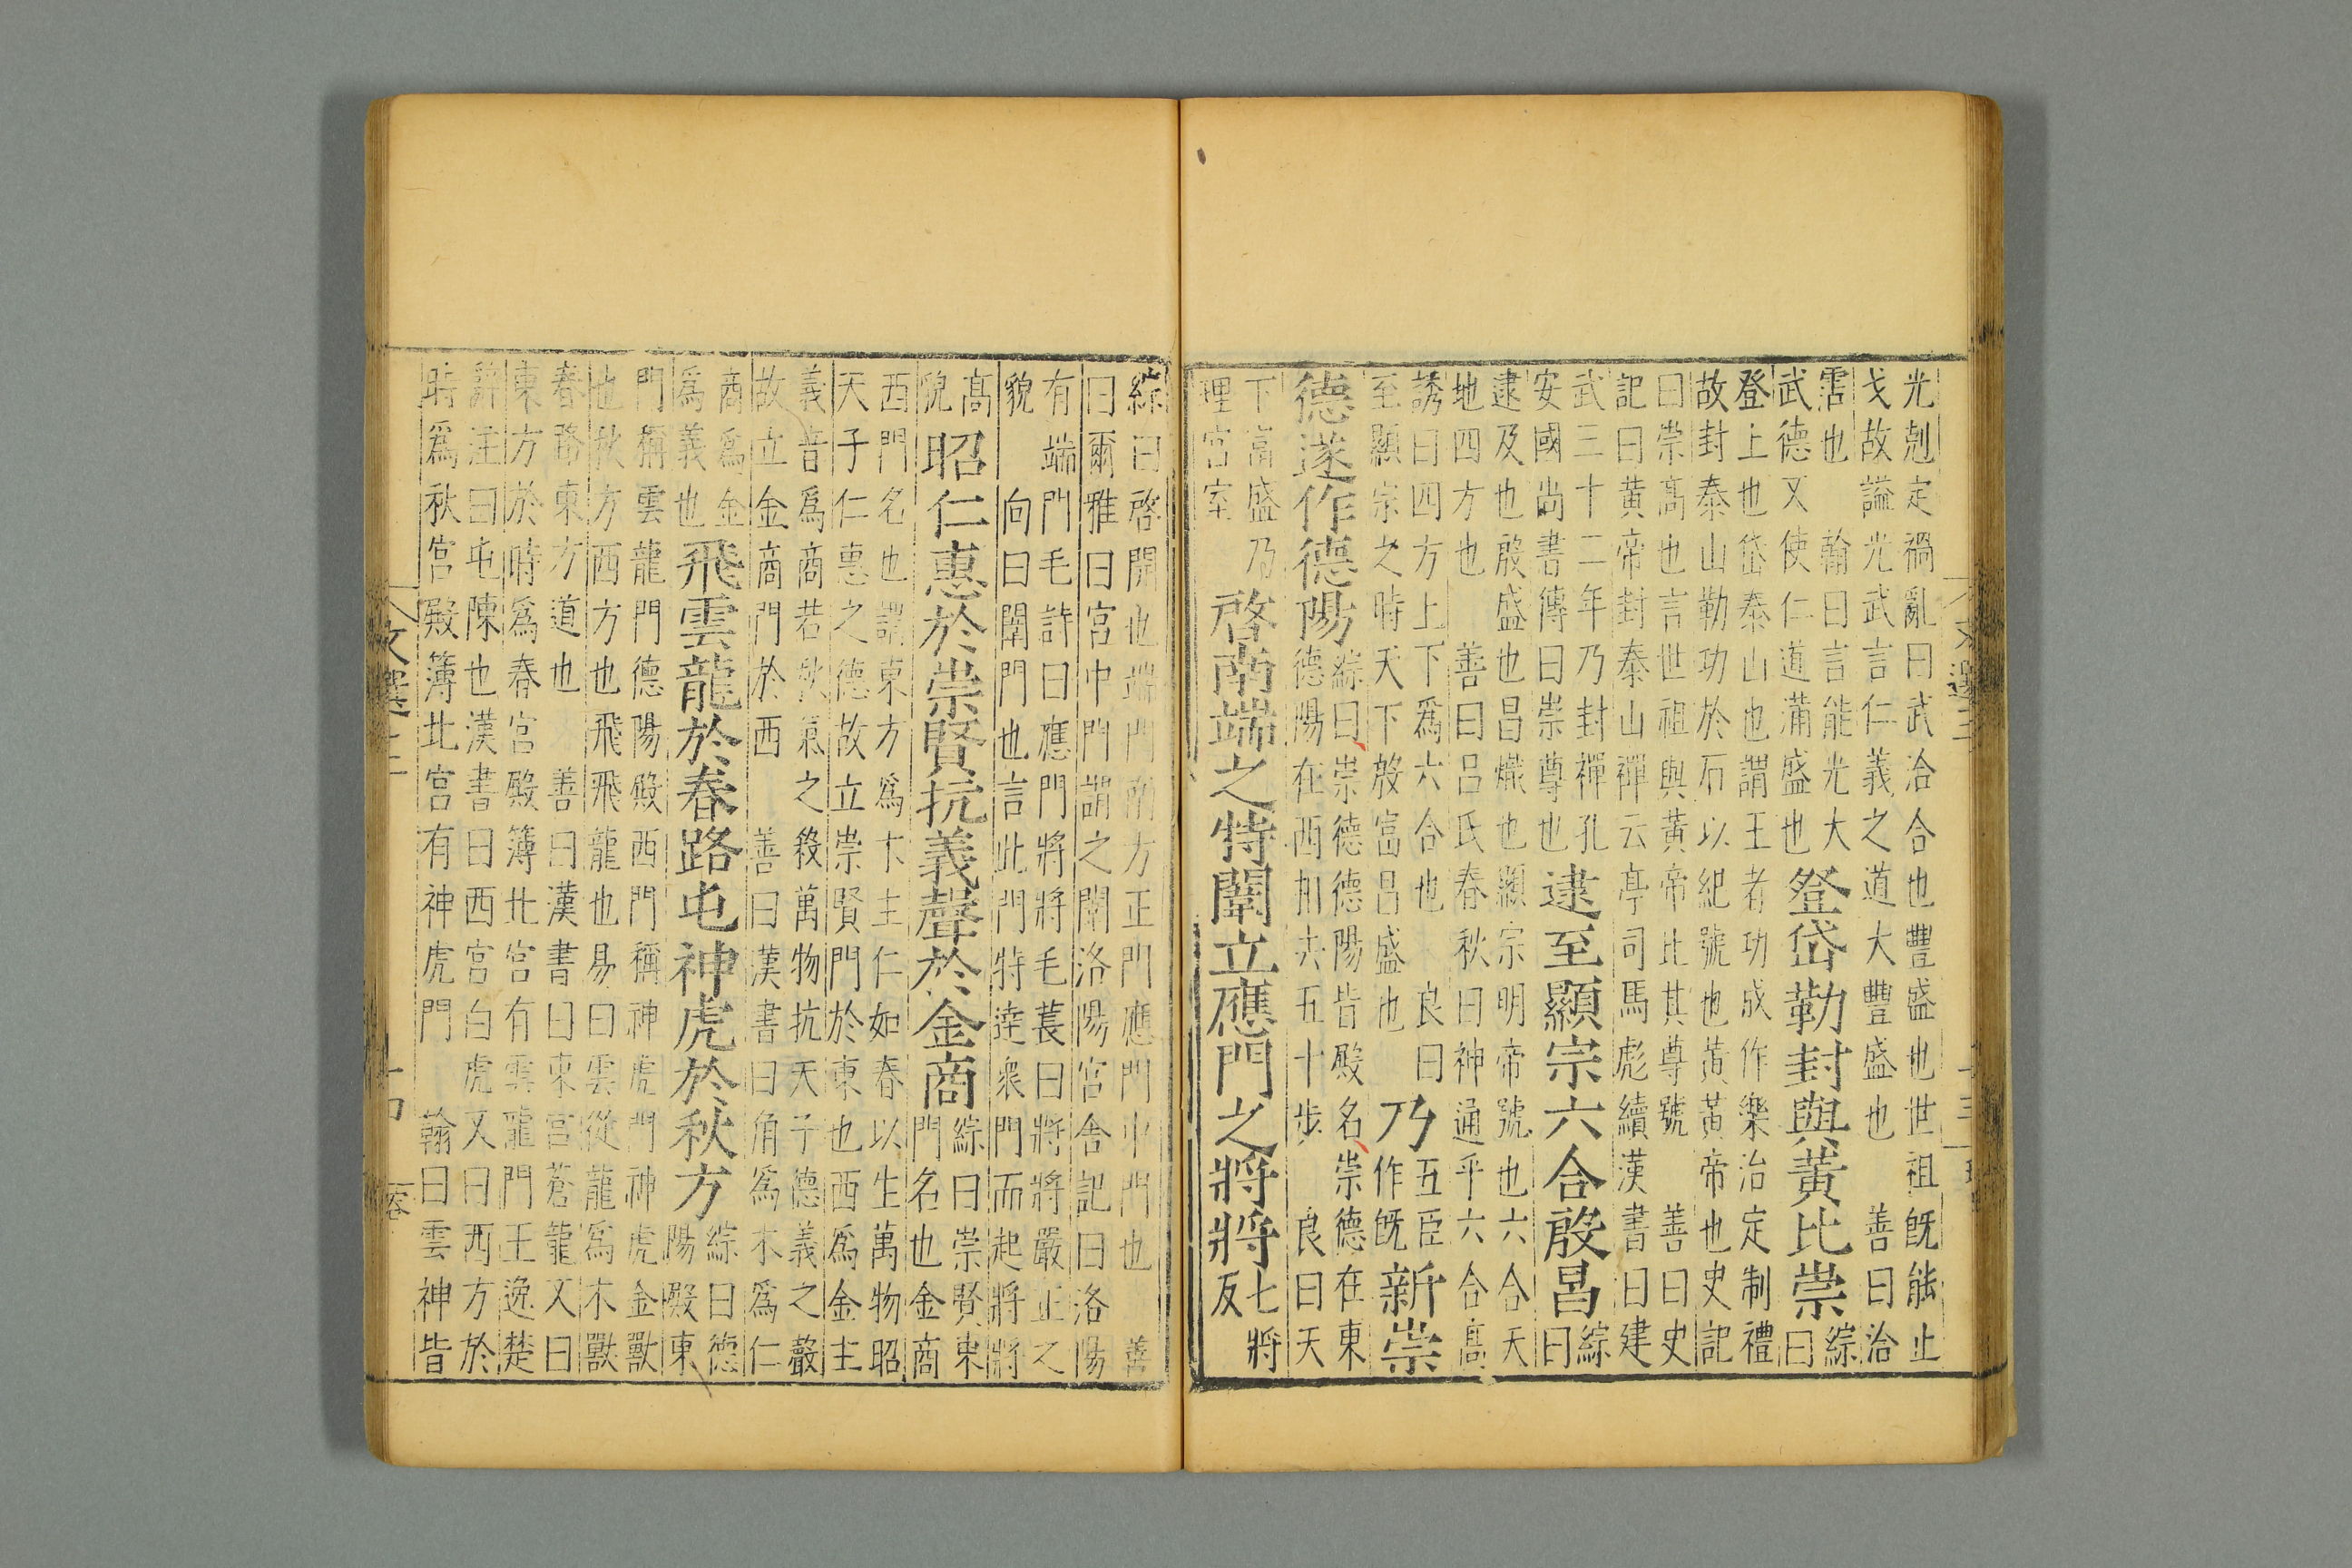 光剋定禍亂曰武洽合也豐盛也世祖旣能止
戈故謚光武言仁義之道大豐盛也 善曰洽
霑也 翰曰言能光大
武德又使仁道蒲盛也
登岱勒封與黃比崇
綜
曰
登上也岱泰山也謂王者功成作樂治定制禮
故封泰山勒功於石以紀號也黃黃帝也史記
曰崇高也言世祖與黃帝比其尊號 善曰史
記曰黃帝封泰山禪云亭司馬彪續漢書曰建
武三十二年乃封禪孔
安國尚書傳曰崇尊也
逮至顯宗六合殷昌
綜
曰
逮及也殷盛也昌熾也顯宗明帝號也六合天
地四方也 善曰呂氏春秋曰神通乎六合高
誘曰四方上下爲六合也 良曰
至顯宗之時天下殷富昌盛也
乃
五臣
作旣
新崇
德遂作德陽
綜曰崇德德陽皆殿名崇德在東
德陽在西相去五十步 良曰天
下富盛乃
理宮室
啓南端之特闈立應門之將將
七將
反
綜曰啓開也端門南方正門應門中門也 善
曰爾雅曰宮中門謂之闈洛陽宮舍記曰洛陽
有端門毛詩曰應門將將毛萇曰將將嚴正之
貌 向曰闈門也言此門特逹衆門而起將將
高
貌
昭仁惠於崇賢抗義聲於金商
綜曰崇賢東
門名也金商
西門名也謂東方爲木主仁如春以生萬物昭
天子仁惠之德故立崇賢門於東也西爲金主
義音爲商若秋氣之殺萬物抗天子德義之聲
故立金商門於西 善曰漢書曰角爲木爲仁
商爲金
爲義也
飛雲龍於春路屯神虎於秋方
綜曰德
陽殿東
門稱雲龍門德陽殿西門稱神虎門神虎金獸
也秋方西方也飛飛龍也易曰雲從龍爲木獸
春路東方道也 善曰漢書曰東宮蒼龍又曰
東方於時爲春宮殿簿北宮有雲龍門王逸楚
辭注曰屯陳也漢書曰西宮白虎又曰西方於
時爲秋宮殿簿北宮有神虎門 翰曰雲神皆